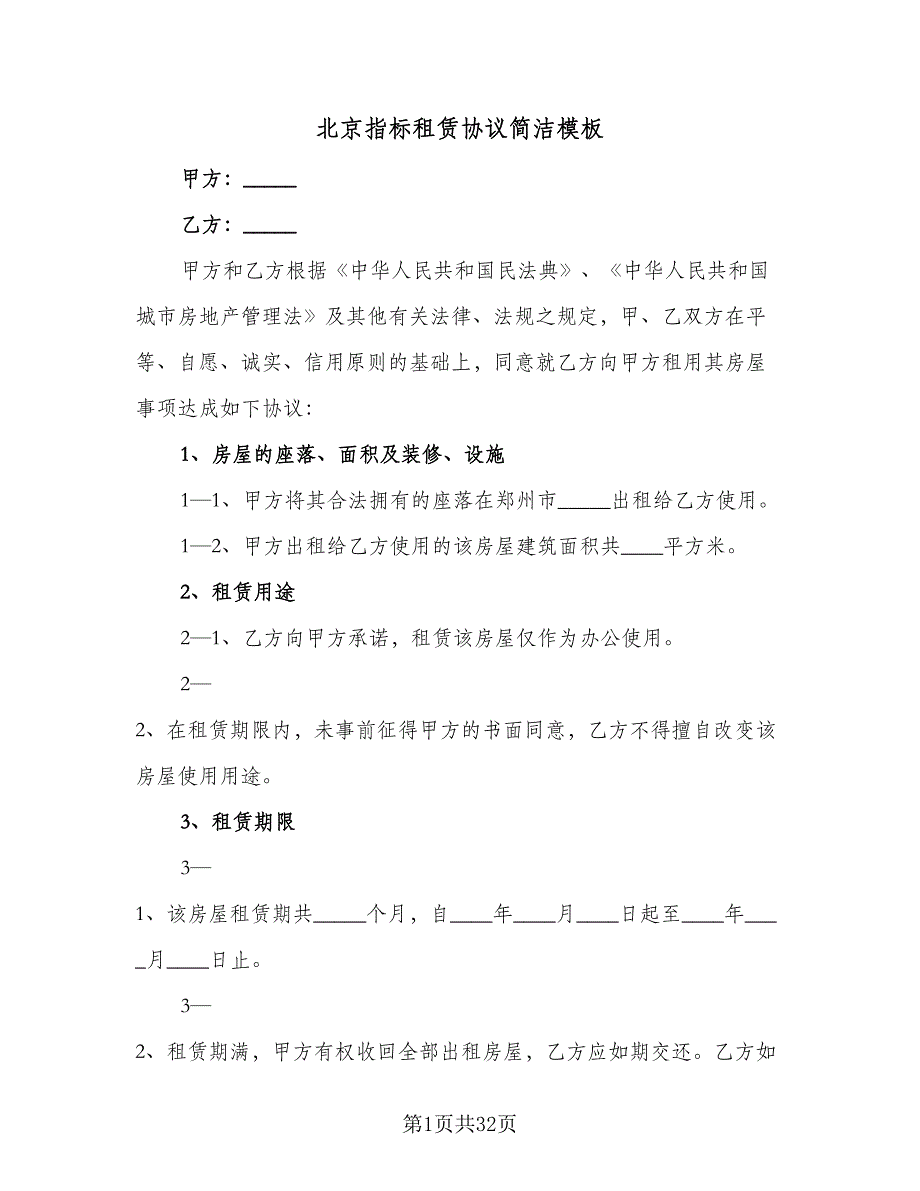 北京指标租赁协议简洁模板
甲方：_____
乙方：_____
甲方和乙方根据《中华人民共和国民法典》、《中华人民共和国
城市房地产管理法》及其他有关法律、法规之规定，甲、乙双方在平
等、自愿、诚实、信用原则的基础上，同意就乙方向甲方租用其房屋
事项达成如下协议：
1、房屋的座落、面积及装修、设施
1—1、甲方将其合法拥有的座落在郑州市_____出租给乙方使用。
1—2、甲方出租给乙方使用的该房屋建筑面积共____平方米。
2、租赁用途
2—1、乙方向甲方承诺，租赁该房屋仅作为办公使用。
2—
2、在租赁期限内，未事前征得甲方的书面同意，乙方不得擅自改变该
房屋使用用途。
3、租赁期限
3—
1、该房屋租赁期共_____个月，自____年____月____日起至____年___
_月____日止。
3—
2、租赁期满，甲方有权收回全部出租房屋，乙方应如期交还。乙方如
第1页共32页